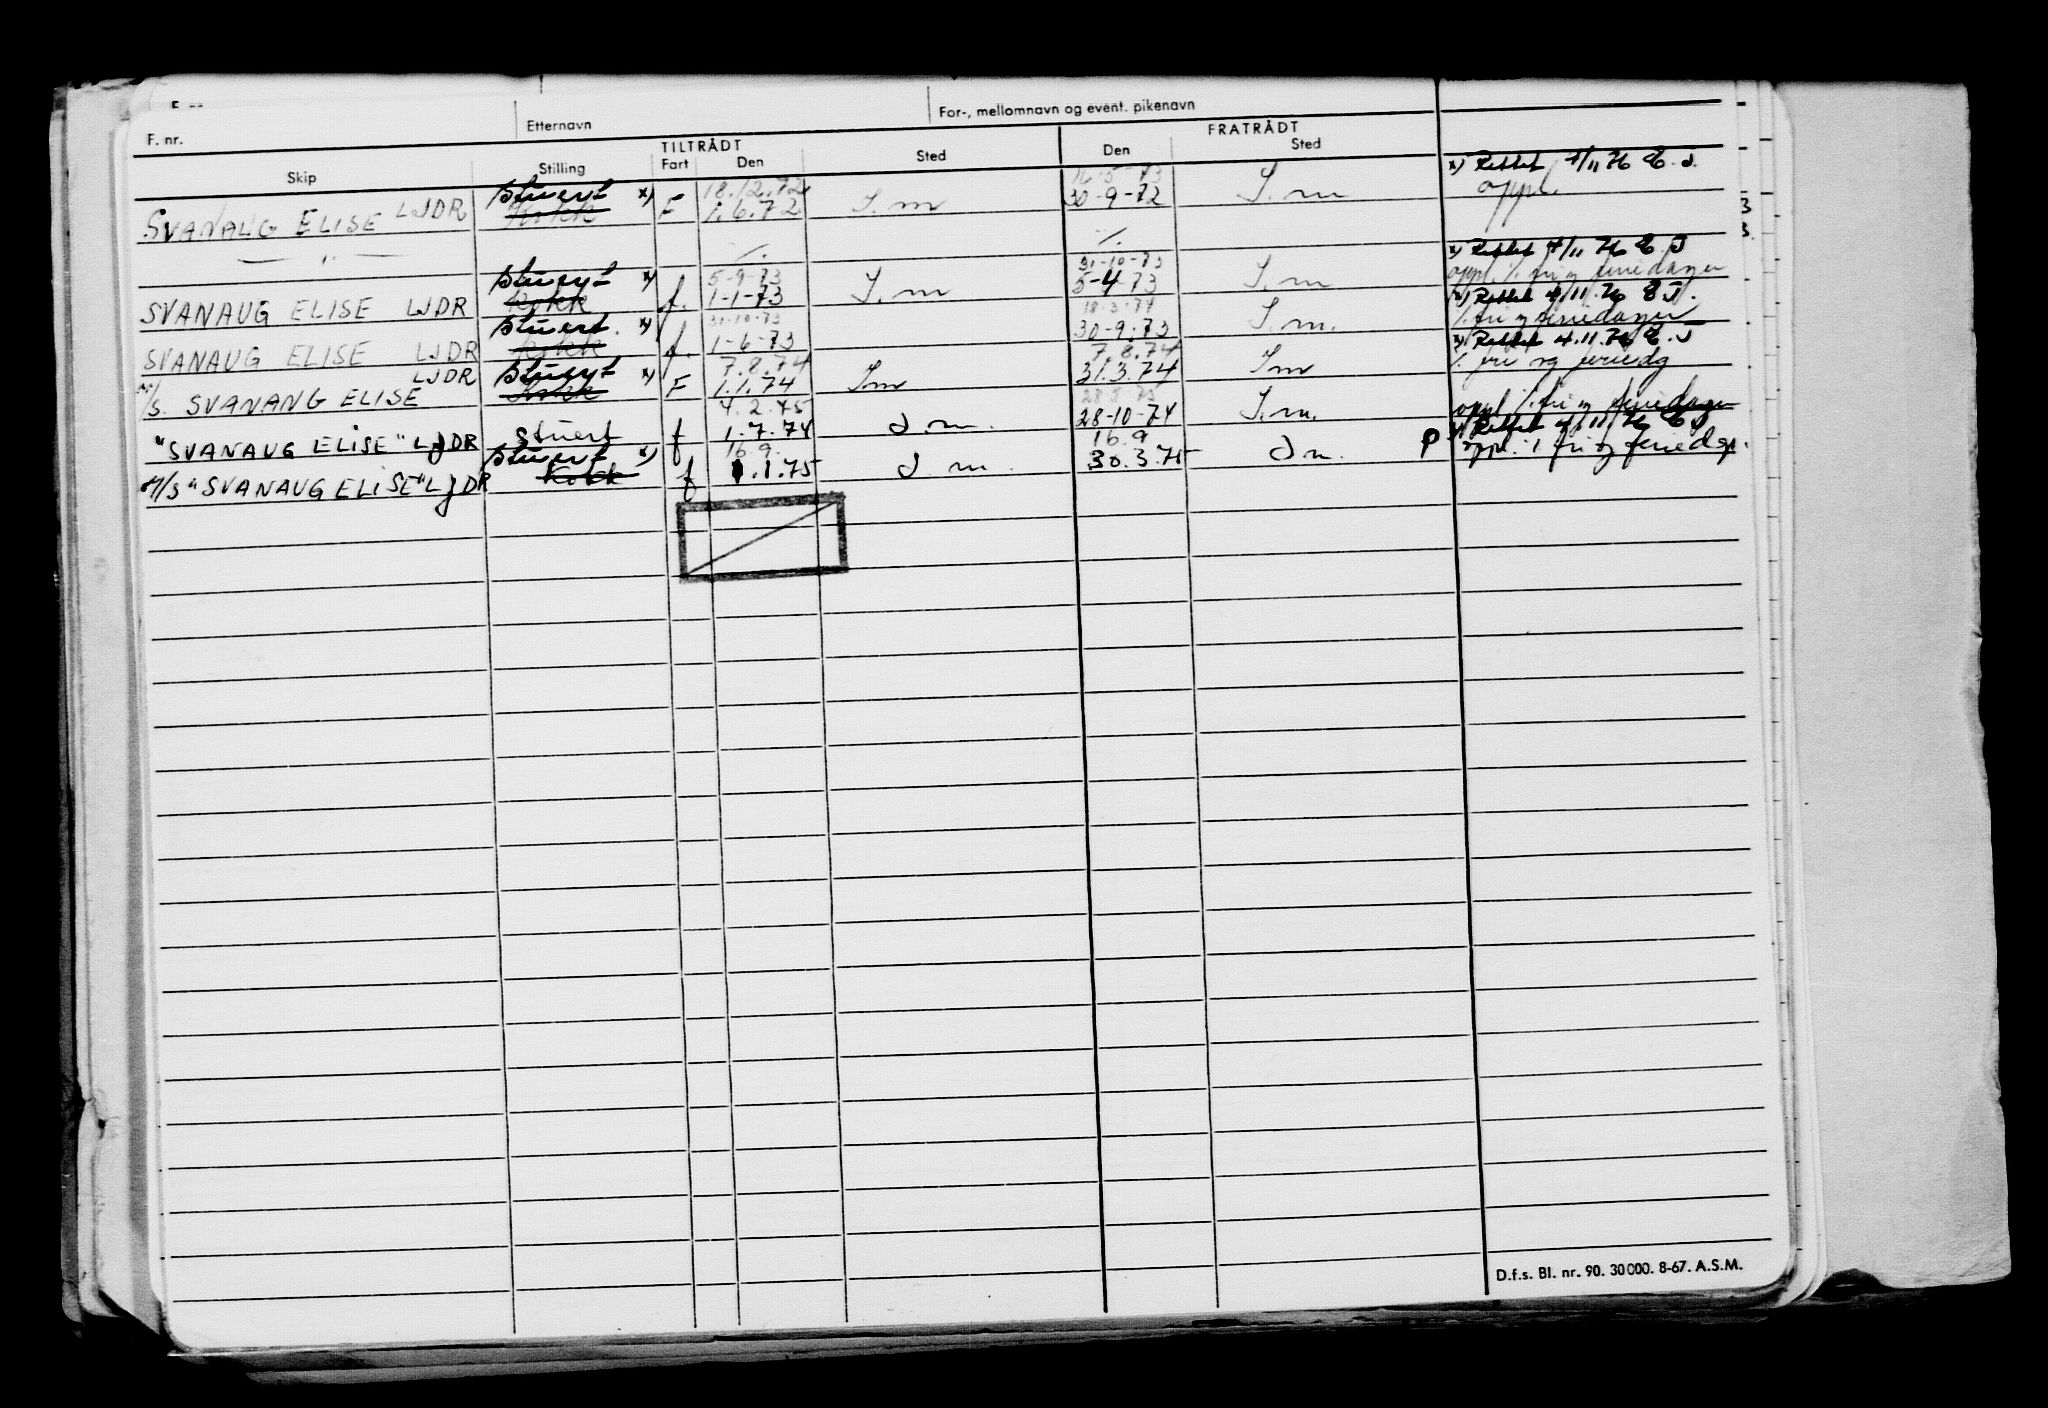 F. nr. Etternavn For-, mellomnavn og event. pikenavn
TILTRÅDT FRATRÅDT
Skip Stilling Fart Den Sted Den Sted
Stuert x) 18.12.72 16-5-73 x) Rettet 4/11 76 E.J.
SVANAUG ELISE LJDR Kokk F 1.6.72 I.m 30-9-72 I.m oppl.
— " — ./. ./.
Stuert x) 5-9-73 31-10-73 x) Rettet 4/11 76 E.J
SVANAUG ELISE LJDR Kokk f. 1-1-73 I.m 5-4-73 I.m oppl. i fri og feriedager
Stuert. x) 31-10-73 18-3-74 x) Rettet 4/11.76 E J.
SVANAUG ELISE LJDR Kokk f. 1-6-73 30-9.73 I.m. i fri og feriedager
Stuert x) 7.8.74 7.8.74 x) Rettet 4.11.76 E.J
M/S. SVANANG ELISE LJDR Kokk F 1.1.74 Im 31.3.74 Im i fri og feriedg
4.2.75 oppl i fri og feriedager
"SVANAUG ELISE" LJDR Stuert f 1.7.74 I.m. 28-10-74 I.m.
Stuert x) 16.9. 16.9 x) Rettet 4/11 76 E J
M/S "SVANAUG ELISE" LJDR Kokk f 1.1.75 I.m. 30.3.75 I m. P oppl. i fri og feriedgr.
D.f.s. Bl. nr. 90. 30 000. 8-67. A.S.M.